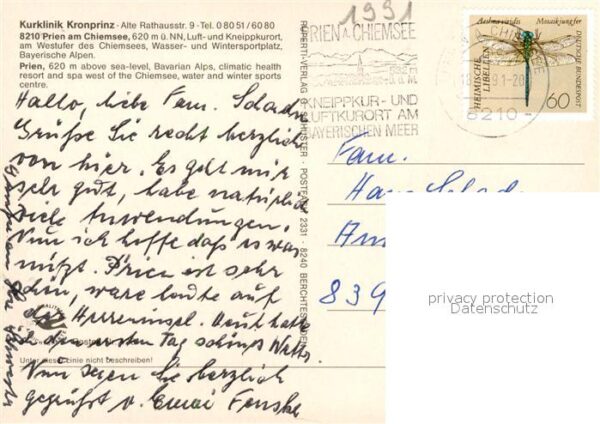 Kurklinik Kronprinz · Alte Rathausstr. 9 · Tel. 0 80 51 / 60 80
8210 Prien am Chiemsee, 620 m ü. NN, Luft- und Kneippkurort,
am Westufer des Chiemsees, Wasser- und Wintersportplatz,
Bayerische Alpen.
Prien, 620 m above sea-level, Bavarian Alps, climatic health
resort and spa west of the Chiemsee, water and winter sports
centre.
Hallo, liebe Fam. Schad
Grüße Sie recht herzlich
von hier. Es geht mir
sehr gut, habe natürlich
viele Anwendungen.
Nun ich hoffe daß es was
nützt. Prien ist sehr
schön, war heute auf
der Herreninsel. Heut hatte
den ersten Tag schönes Wetter.
Unter diese Linie nicht beschreiben!
Nun seien Sie herzlich
gegrüßt v. Fenske
RUPERTI-VERLAG SCHUSTER · POSTFACH 2331 · 8240 BERCHTESGADEN
1991
PRIEN A. CHIEMSEE
KNEIPPKUR- UND
LUFTKURORT AM
BAYERISCHEN MEER
8210
Aeshna viridis Mosaikjungfer
HEIMISCHE LIBELLEN
DEUTSCHE BUNDESPOST
60
Fam.
Schad
Am
839
privacy protection
Datenschutz